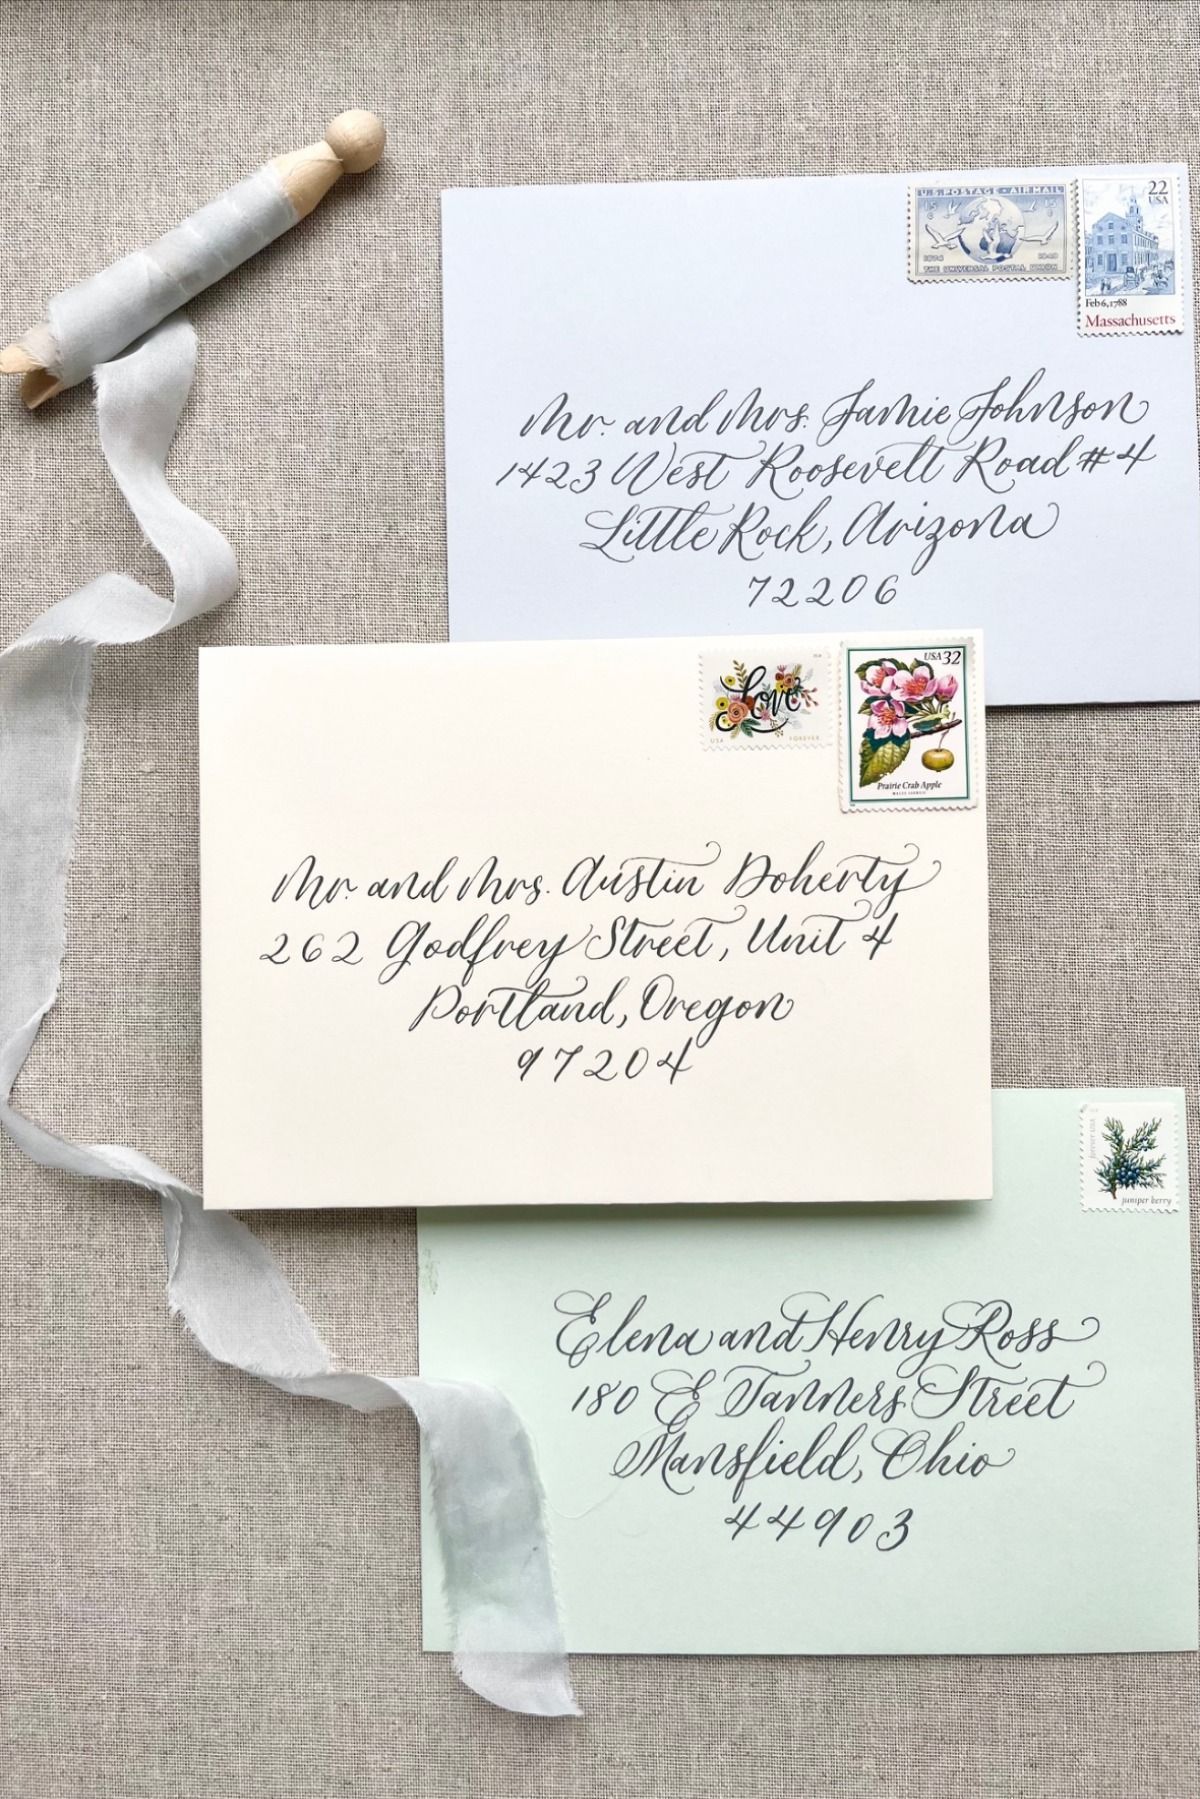 U.S. POSTAGE - AIR MAIL
15 C 15 C
1874 1949
THE UNIVERSAL POSTAL UNION
22
USA
Feb 6, 1788
Massachusetts
Mr. and Mrs. Jamie Johnson
1423 West Roosevelt Road #4
Little Rock, Arizona
72206
Love
USA FOREVER
USA 32
Prairie Crab Apple
Mr. and Mrs. Austin Doherty
262 Godfrey Street, Unit 4
Portland, Oregon
97204
forever USA
juniper berry
Elena and Henry Ross
180 E Tanners Street
Mansfield, Ohio
44903